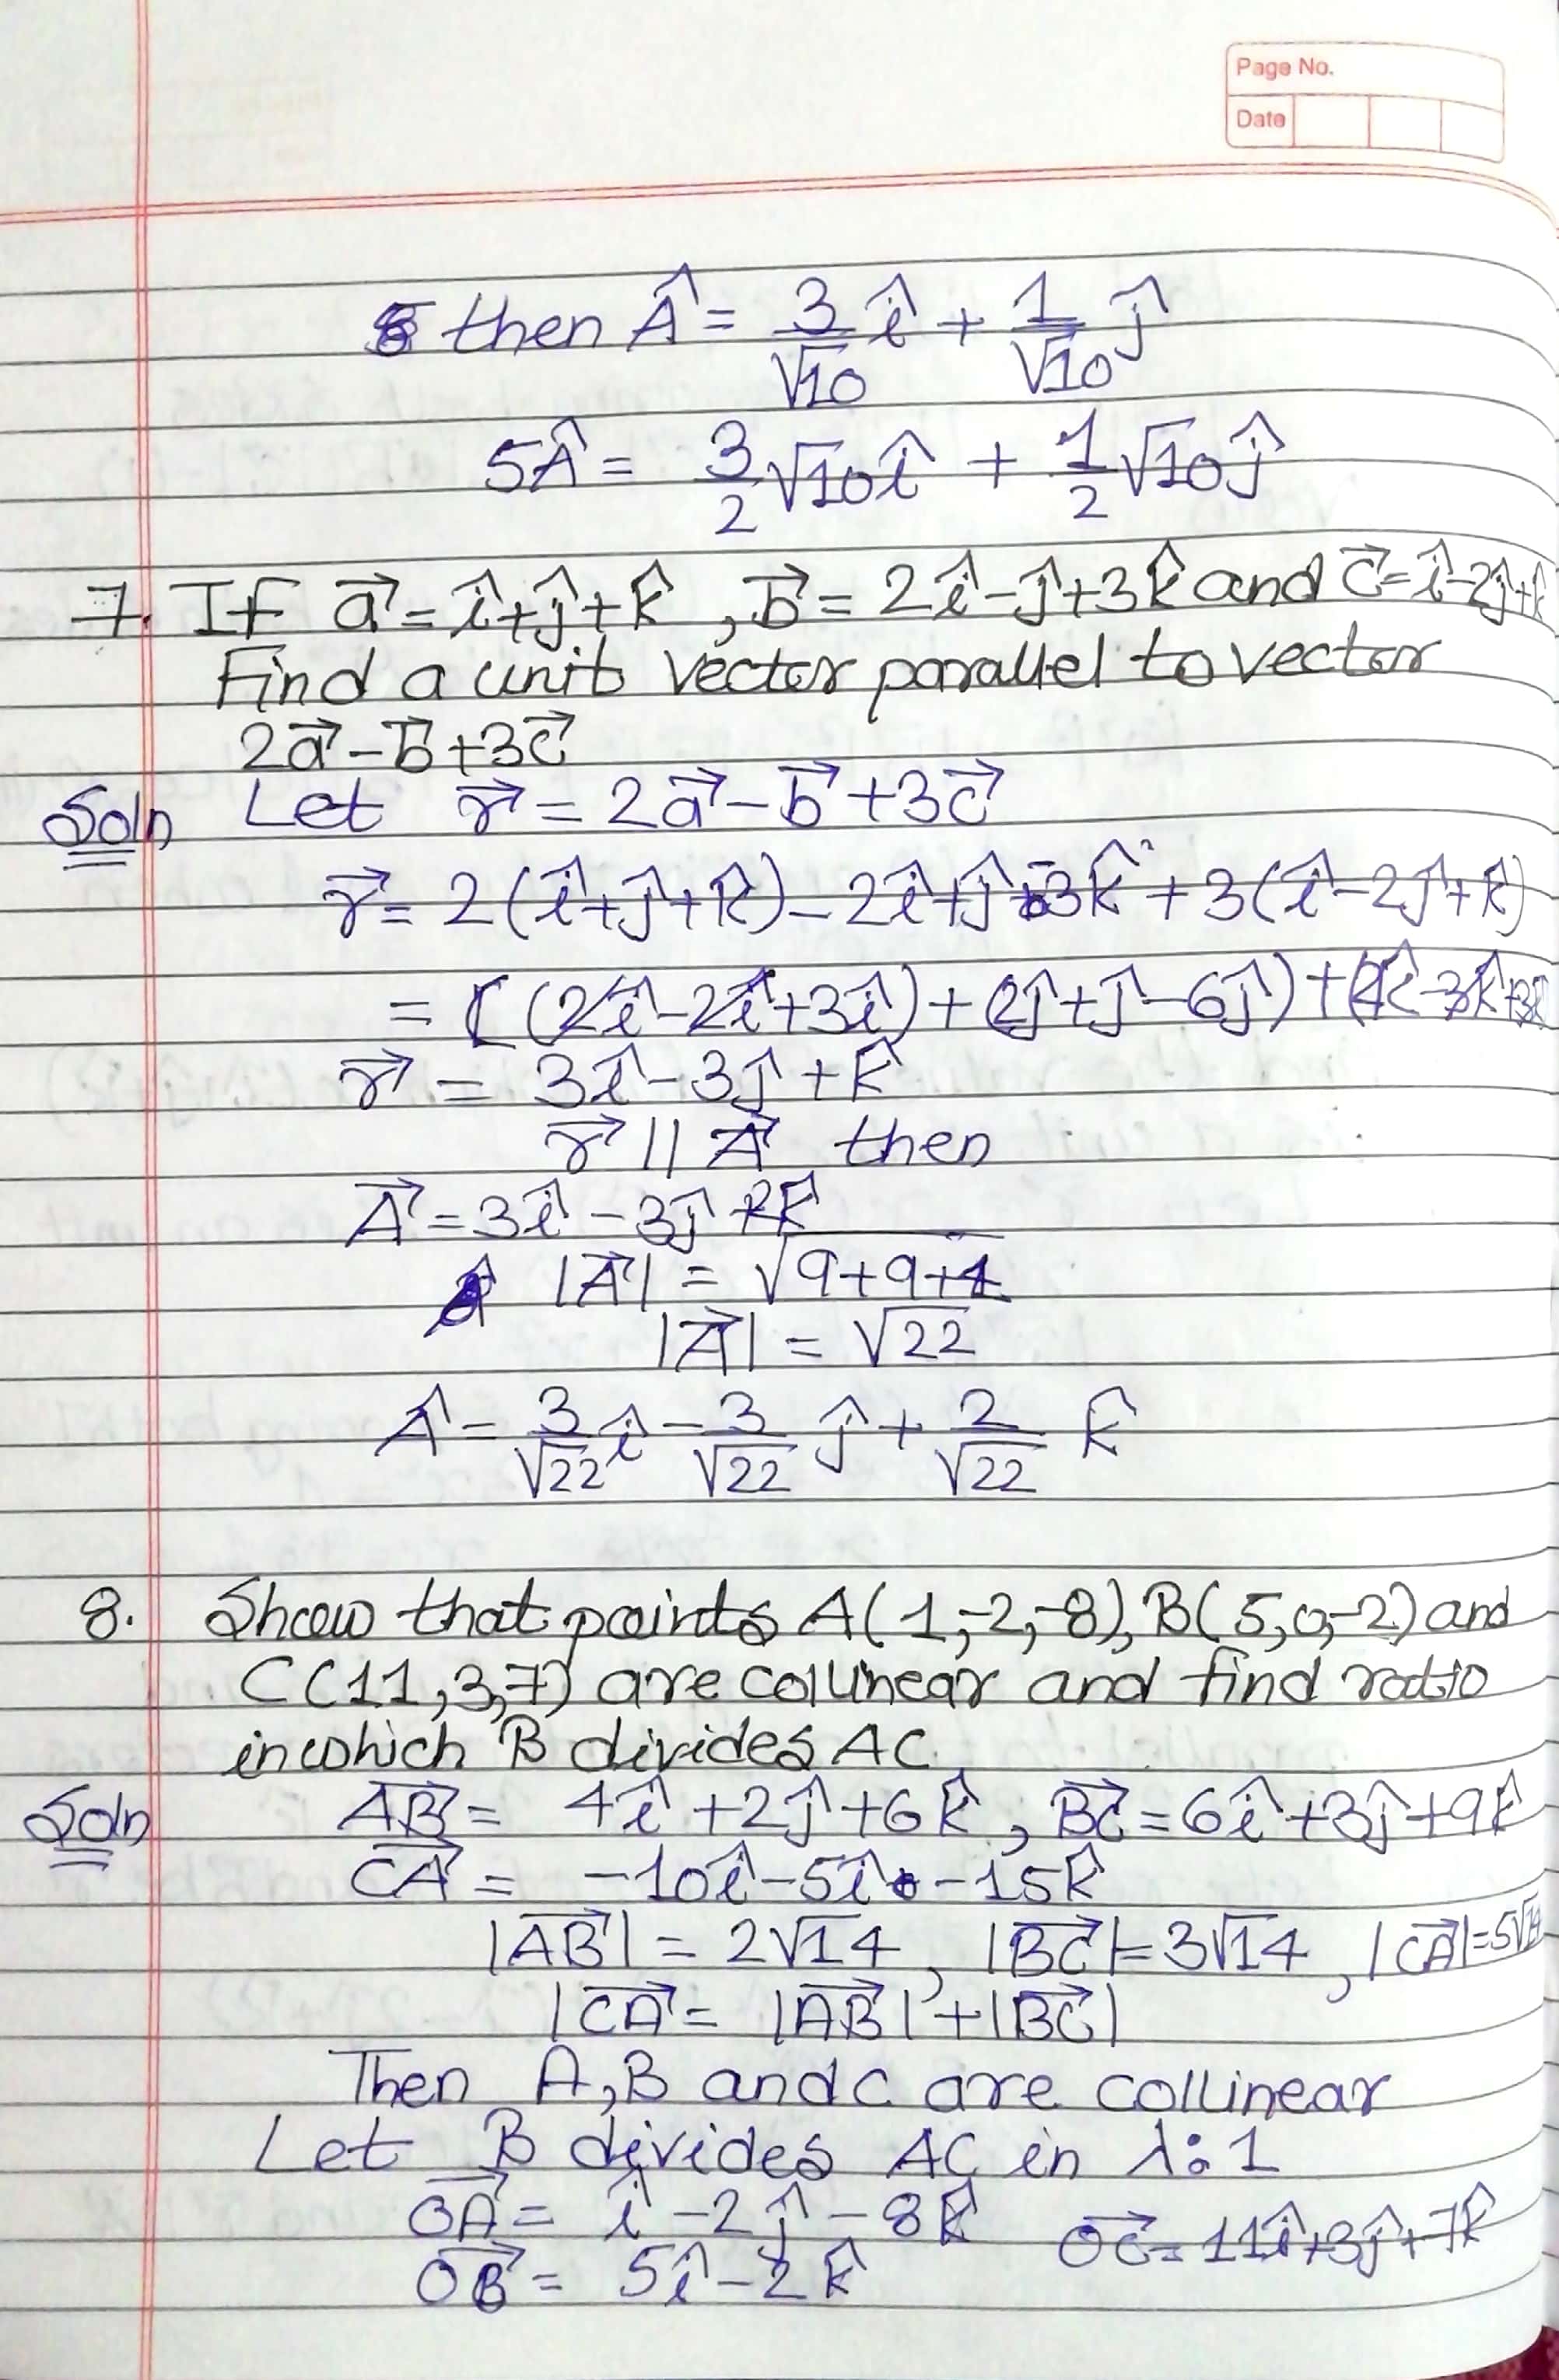 Page No.
Date
then Â = 3/√10 î + 1/√10 ĵ
5Â = 3/2 √10 î + 1/2 √10 ĵ
7. If a⃗ = î+ĵ+k̂, b⃗ = 2î-ĵ+3k̂ and c⃗ = î-2ĵ+k̂
Find a unit vector parallel to vector
2a⃗-b⃗+3c⃗
Soln Let r⃗ = 2a⃗-b⃗+3c⃗
r⃗ = 2(î+ĵ+k̂)-2î+ĵ-3k̂+3(î-2ĵ+k̂)
= (2î-2î+3î)+(2ĵ+ĵ-6ĵ)+(2k̂-3k̂+3k̂)
r⃗ = 3î-3ĵ+k̂
r⃗ || A⃗ then
A⃗ = 3î-3ĵ+2k̂
|A⃗| = √9+9+4
|A⃗| = √22
Â = 3/√22 î - 3/√22 ĵ + 2/√22 k̂
8. Show that points A(1,-2,-8), B(5,0,-2) and
C(11,3,7) are collinear and find ratio
in which B divides AC.
Soln AB⃗ = 4î+2ĵ+6k̂, BC⃗ = 6î+3ĵ+9k̂
CA⃗ = -10î-5î-15k̂
|AB⃗| = 2√14, |BC⃗| = 3√14, |CA⃗| = 5√14
|CA⃗ = |AB⃗|+|BC⃗|
Then A,B and C are collinear
Let B divides AC in λ:1
OA⃗ = î-2ĵ-8k̂ OC⃗ = 11î+3ĵ+7k̂
OB⃗ = 5î-2k̂